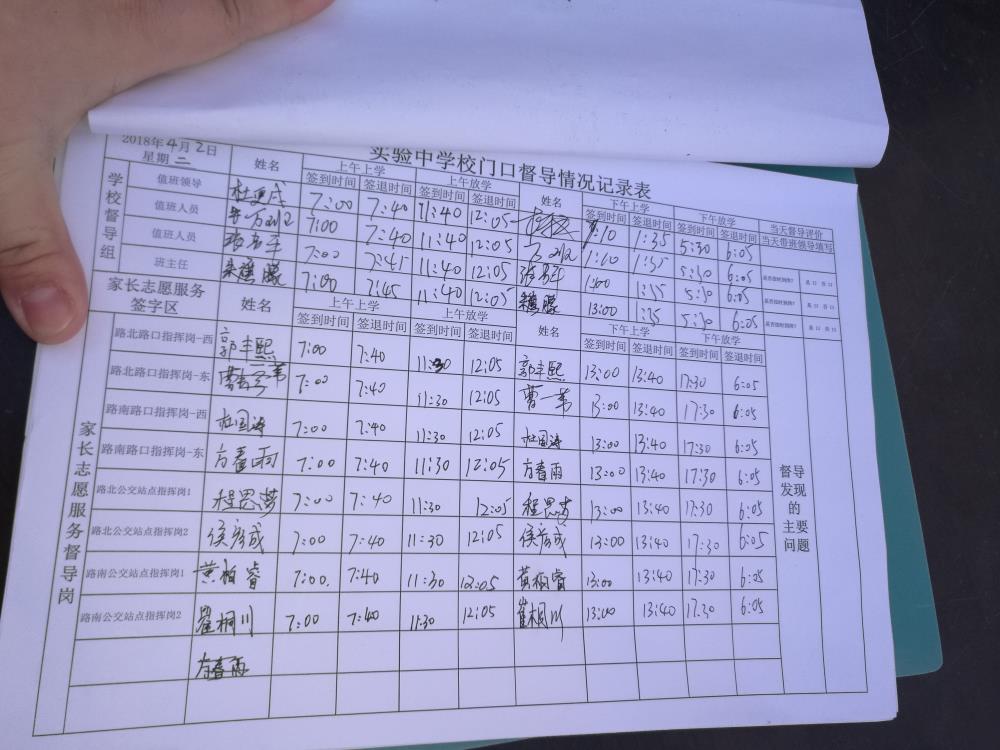 实验中学校门口督导情况记录表
2018年4月2日
星期二 姓名 上午上学 上午放学 姓名 下午上学 下午放学 当天督导评价
签到时间 签退时间 签到时间 签退时间 签到时间 签退时间 签到时间 签退时间 当天带班领导填写
学校督导组
值班领导 7:00 7:40 11:40 12:05 1:35 5:30 6:05
值班人员 7:00 7:40 11:40 12:05 1:10 1:35 5:30 6:05 是否按时到岗? 是 口 否 口
值班人员 7:00 7:45 11:40 12:05 1:35 5:30 6:05 是否按时到岗? 是 口 否 口
班主任 7:00 7:45 11:40 12:05 13:00 1:35 5:30 6:05 是否按时到岗? 是 口 否 口
家长志愿服务签字区 姓名 上午上学 上午放学 姓名 下午上学 下午放学
签到时间 签退时间 签到时间 签退时间 签到时间 签退时间 签到时间 签退时间
家长志愿服务督导岗
路北路口指挥岗-西 郭丰熙 7:00 7:40 11:30 12:05 郭丰熙 13:00 13:40 17:30 6:05
路北路口指挥岗-东 7:00 7:40 11:30 12:05 13:00 13:40 17:30 6:05
路南路口指挥岗-西 杜国涛 7:00 7:40 11:30 12:05 杜国涛 13:00 13:40 17:30 6:05
路南路口指挥岗-东 方春雨 7:00 7:40 11:30 12:05 方春雨 13:00 13:40 17:30 6:05
路北公交站点指挥岗1 程思梦 7:00 7:40 11:30 12:05 程思梦 13:00 13:40 17:30 6:05
路北公交站点指挥岗2 侯彦成 7:00 7:40 11:30 12:05 侯彦成 13:00 13:40 17:30 6:05
路南公交站点指挥岗1 黄柏睿 7:00 7:40 11:30 12:05 黄柏睿 13:00 13:40 17:30 6:05
路南公交站点指挥岗2 崔桐川 7:00 7:40 11:30 12:05 崔桐川 13:00 13:40 17:30 6:05
方春雨
督导发现的主要问题